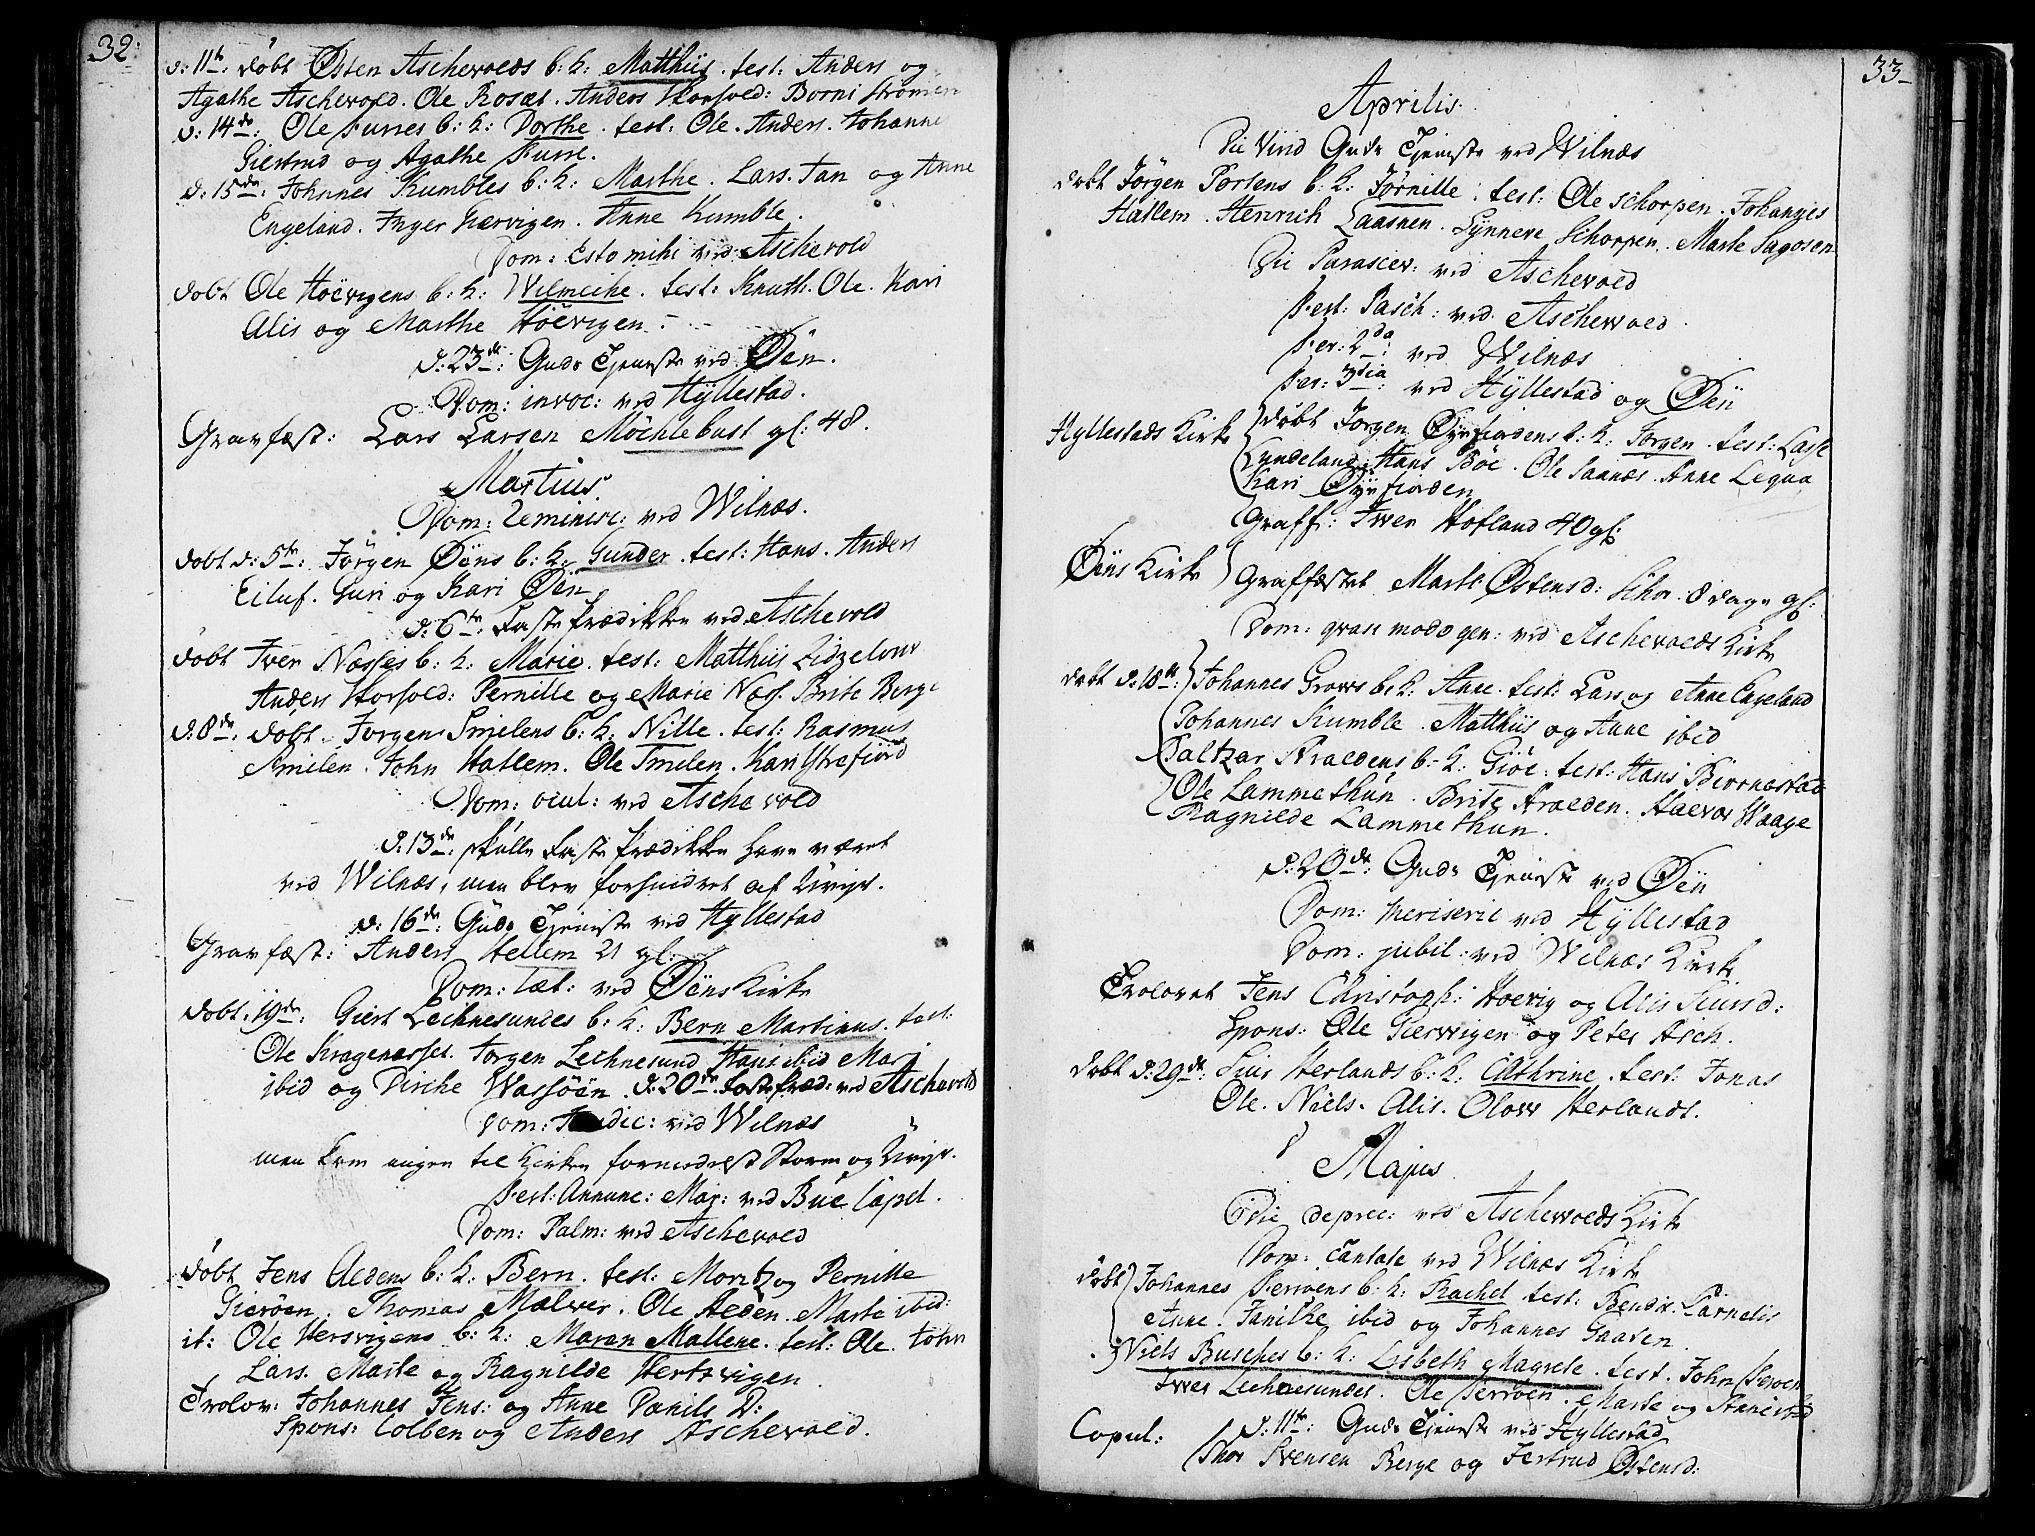 32.
d: 11te: döbt Østen Aschevolds b: h: Matthiis. test: Anders og
Agathe Aschevold. Ole Rosæt. Anders Storfold: Borni Strömmen
d: 14de: Ole Furres b: h: Dorthe. test: Ole. Anders. Johanne
Giertrud og Agathe Furre.
d: 15de: Johnnes Kumbles b: h: Marthe. Lars. Jan og Anne
Engeland. Inger Giervigen. Anne Kumble.
Dom: Esto mihi ved Aschevold
döbt Ole Höevigens b: h: Wilmeihe. test: Knuth. Ole. Kari
Alis og Marthe Höevigen.
d: 23de: Guds Tjeneste ved Øen.
Dom: invoc: ved Hyllestad.
Gravfæst: Lars Larsen Möchlebust gl: 48.
Martius.
Dom: Reminisc: ved Wilnæs.
döbt d: 5te: Jørgen Øens b: h: Gunder. test: Hans. Anders
Eiluf. Guri og Kari Øen.
d: 6te: Faste Prædikken ved Aschevold
döbt Iver Næsses b: h: Marie. test: Matthiis
Anders Storfold: Pernille og Marie Næss. Brite Berge
d: 8de: döbt. Jørgen Smelens b: h: Nille. test: Rasmus
Smilen. John Hatlem. Ole Smilen. Kari Ytrefiord
Dom: ocul: ved Aschevold
d: 13de: skulle Faste Prædikken have været
ved Wilnæs, men blev forhindret af Uvejr.
d: 16de: Guds Tjeneste ved Hyllestad
Gravfæst: Anders Hellem 21 gl:
Dom: Læt: ved Øens Kirke
döbt. 19de: Giert Lechnesundes b: h: Bern Martinus. test:
Ole Kragenæsset. Jørgen Lechnesund Hans ibid Mari
ibid og Dirche Wassöen. d: 20de faste præd: ved Aschevold
Dom: Judic: ved Wilnæs
men kom ingen til Kirken formedelst Storm og Uvejr.
Fest: Annunc: Mar: ved Bue Capel.
Dom: Palm: ved Aschevold
döbt Jens Aldens b: h: Bern. test: Moritz og Pernille
Gieröen. Thomas Malver. Ole Alden. Marte ibid:
it: Ole Hersvigens b: h: Maren Mallene. test: Ole. John
Lars. Marte og Ragnilde Hertsvigen.
Trolov: Johannes Jens: og Anne Danils D:
Spons: Colben og Anders Aschevold.
33
Aprilis.
Die Virid Guds Tjeneste ved Wilnæs
döbt Jörgen Portens b: h: Jörnille. test: Ole Schorpen. Johannes
Hatlem. Henrich Laasnen. Synneve Schorpen. Marte Sagosen
Die Parascev: ved Aschevold
Fest: Pasch: ved Aschevold.
Fer: 2da: ved Wilnæs
Fer: 3tia: ved Hyllestad og Øen
Hyllestads Kirke döbt Jorgen Øyefiordens b: h: Jorgen. test: Lasse
Lundeland. Hans Böe. Ole Saanæs. Anne Leqva
Kari Øyefiorden
Graff: Iver Hofland 40 gl:
Øens Kirke Graffæstet Marte Østensd: 8 dage gl:
Dom: qvasi modo gen: ved Aschevolds Kirke
döbt d: 18de: Johannes Grows b: h: Anne. test: Lars og Anne Engeland
Johannes Kumble. Matthiis og Anne ibid
Paltzar Araldens b: h: Giöe. test: Hans Biornestad
Ole Lammethun. Brite Aralden. Halvor Waage
Ragnilde Lammethun.
d: 20de: Guds Tjeneste ved Øen
Dom: Meriseric ved Hyllestad
Dom: jubil: ved Wilnæs Kirke
Trolovet Jens Christoph: Hoevig og Alis Siursd:
Spons: Ole Giervigen og Peter Asch.
döbt d: 29de: Siur Herlands b: h: Cathrine. test: Jonas
Ole. Niels. Alis. Olow Herlands.
Majus
Die deprec: ved Aschevolds Kirke
Dom: Cantate ved Wilnæs Kirke
döbt Johannes Perroens b: h: Rachel test: Bendix. Carnelis
Anne. Janikhe ibid og Johannes Gaasen.
Niels Busches b: h: Lisbeth Magrete. test. John Perroen
Iver Lechnesundes. Ole Perröen. Marte og Anne ibid
d: 11te: Guds Tjeneste ved Hyllestad
Copul: Thor Svensen Berge og Jertrud Østensd: